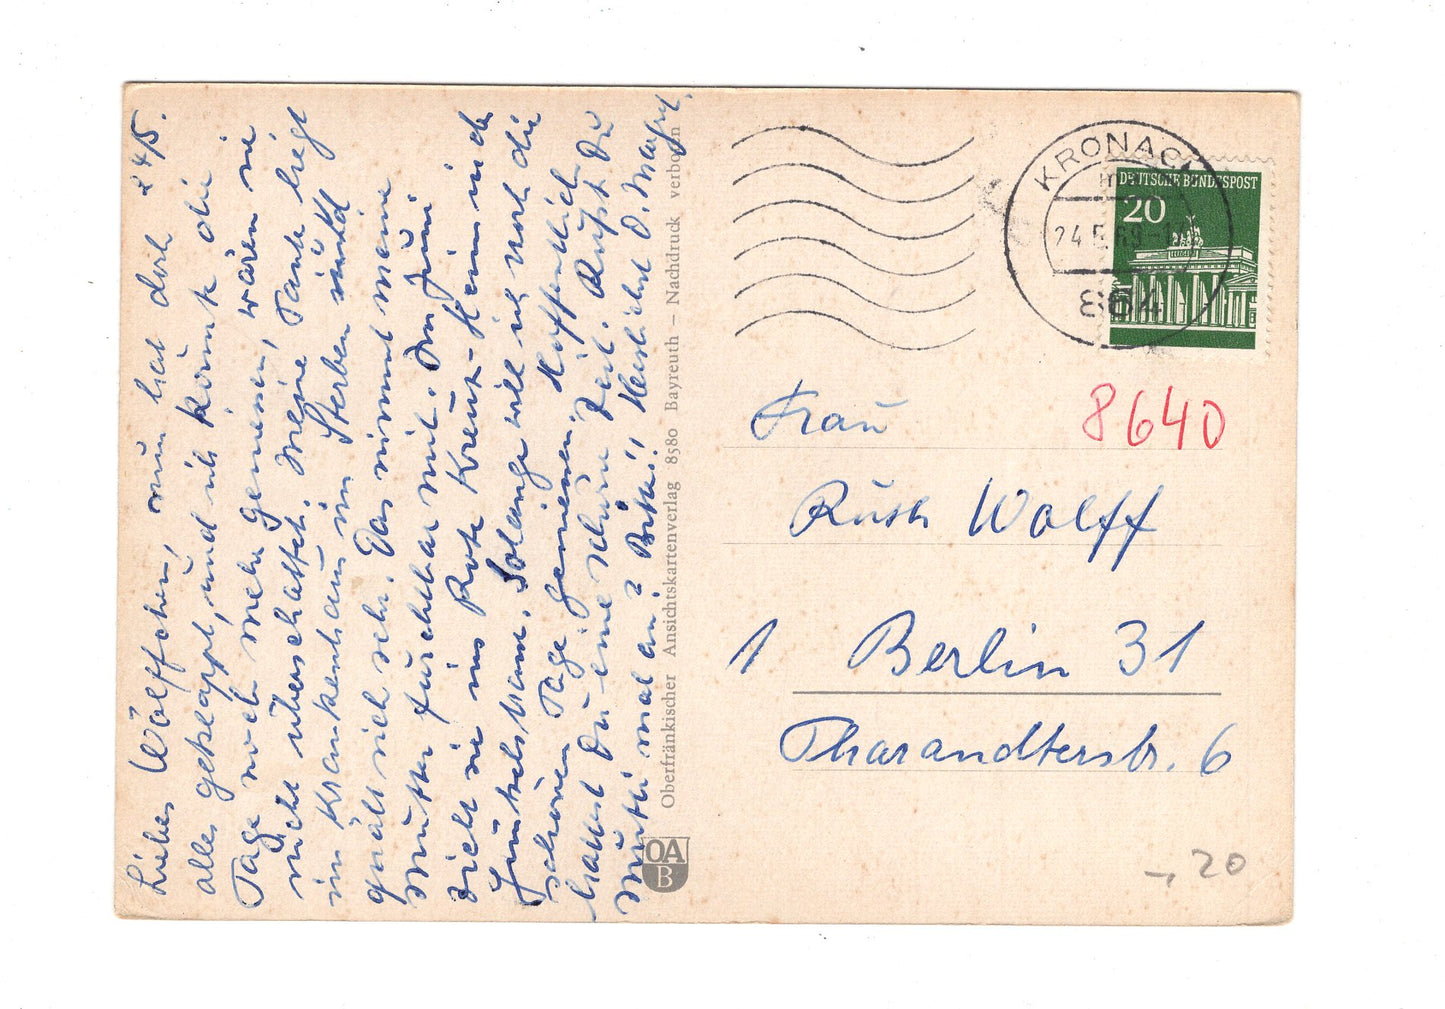 24/5.
Liebes Wölfchen, nun hat doch
alles geklappt, und ich könnt die
Tage noch mehr genießen, wären sie
nicht überschattet. Meine Tante liegt
im Krankenhaus im Sterben und
quält sich sehr. Das nimmt meine
Mutter furchtbar mit. Im Juni
zieht sie ins Rote Kreuz-Heim nach
. Solange will ich noch die
schönen Tage genießen. Hoffentlich
hattest Du eine schöne Zeit. Rufst Du
Mutti mal an? Bitte! Herzlichst D.
Oberfränkischer Ansichtskartenverlag 8580 Bayreuth – Nachdruck verboten
OAB
KRONACH
24.5.69
864
DEUTSCHE BUNDESPOST
20
8640
Frau
Ruth Wolff
1 Berlin 31
Tharandterstr. 6
-,20